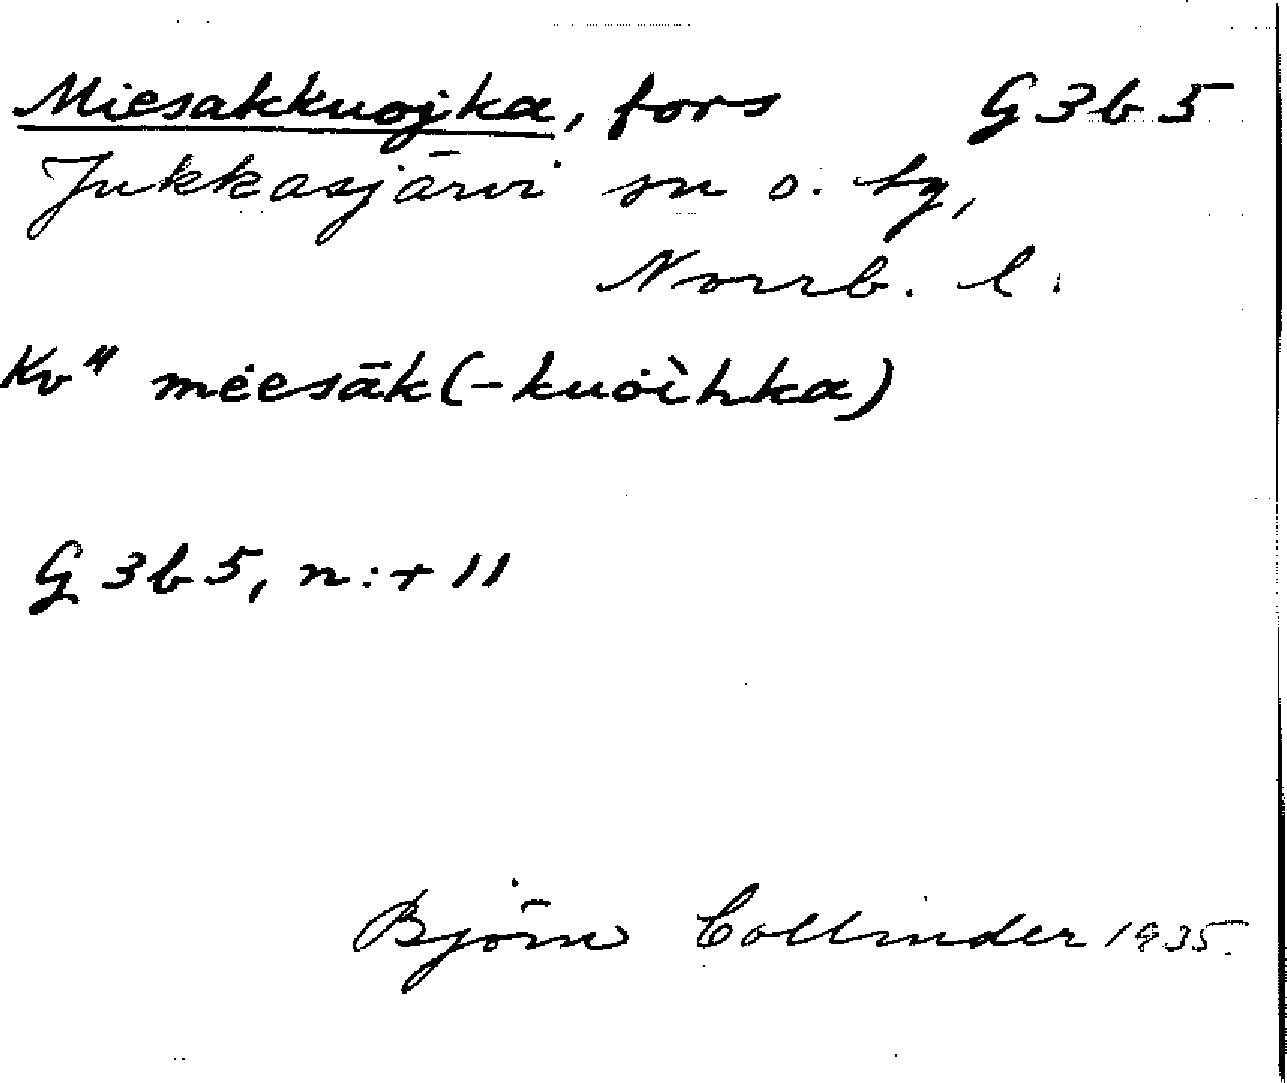 Miesakkuojka, fors G 3 b 5
Jukkasjärvi sn o. tg,
Norrb. l.
Kv" mėesāk(-kuȯìhka)
G 3 b 5, n:r 11
Björn Collinder 1935.